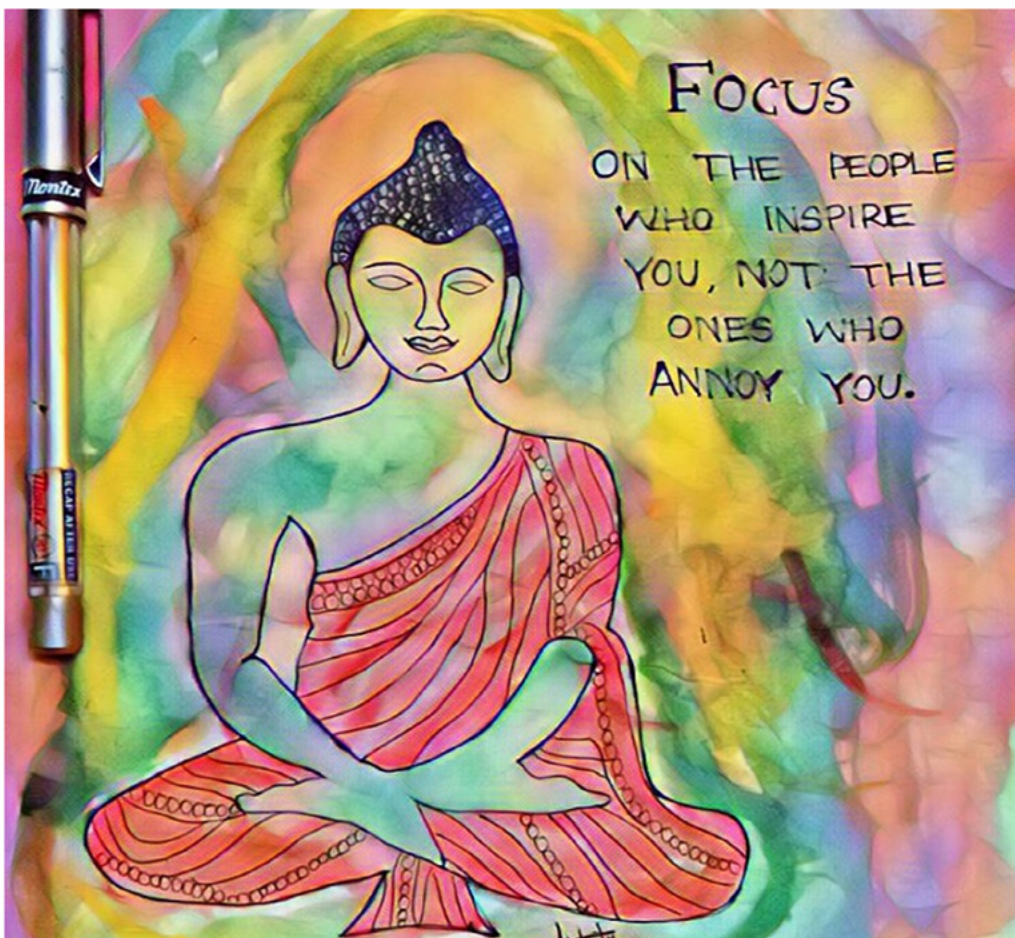 FOCUS
ON THE PEOPLE
WHO INSPIRE
YOU, NOT THE
ONES WHO
ANNOY YOU.
Montex
RECAP AFTER USE
Montex